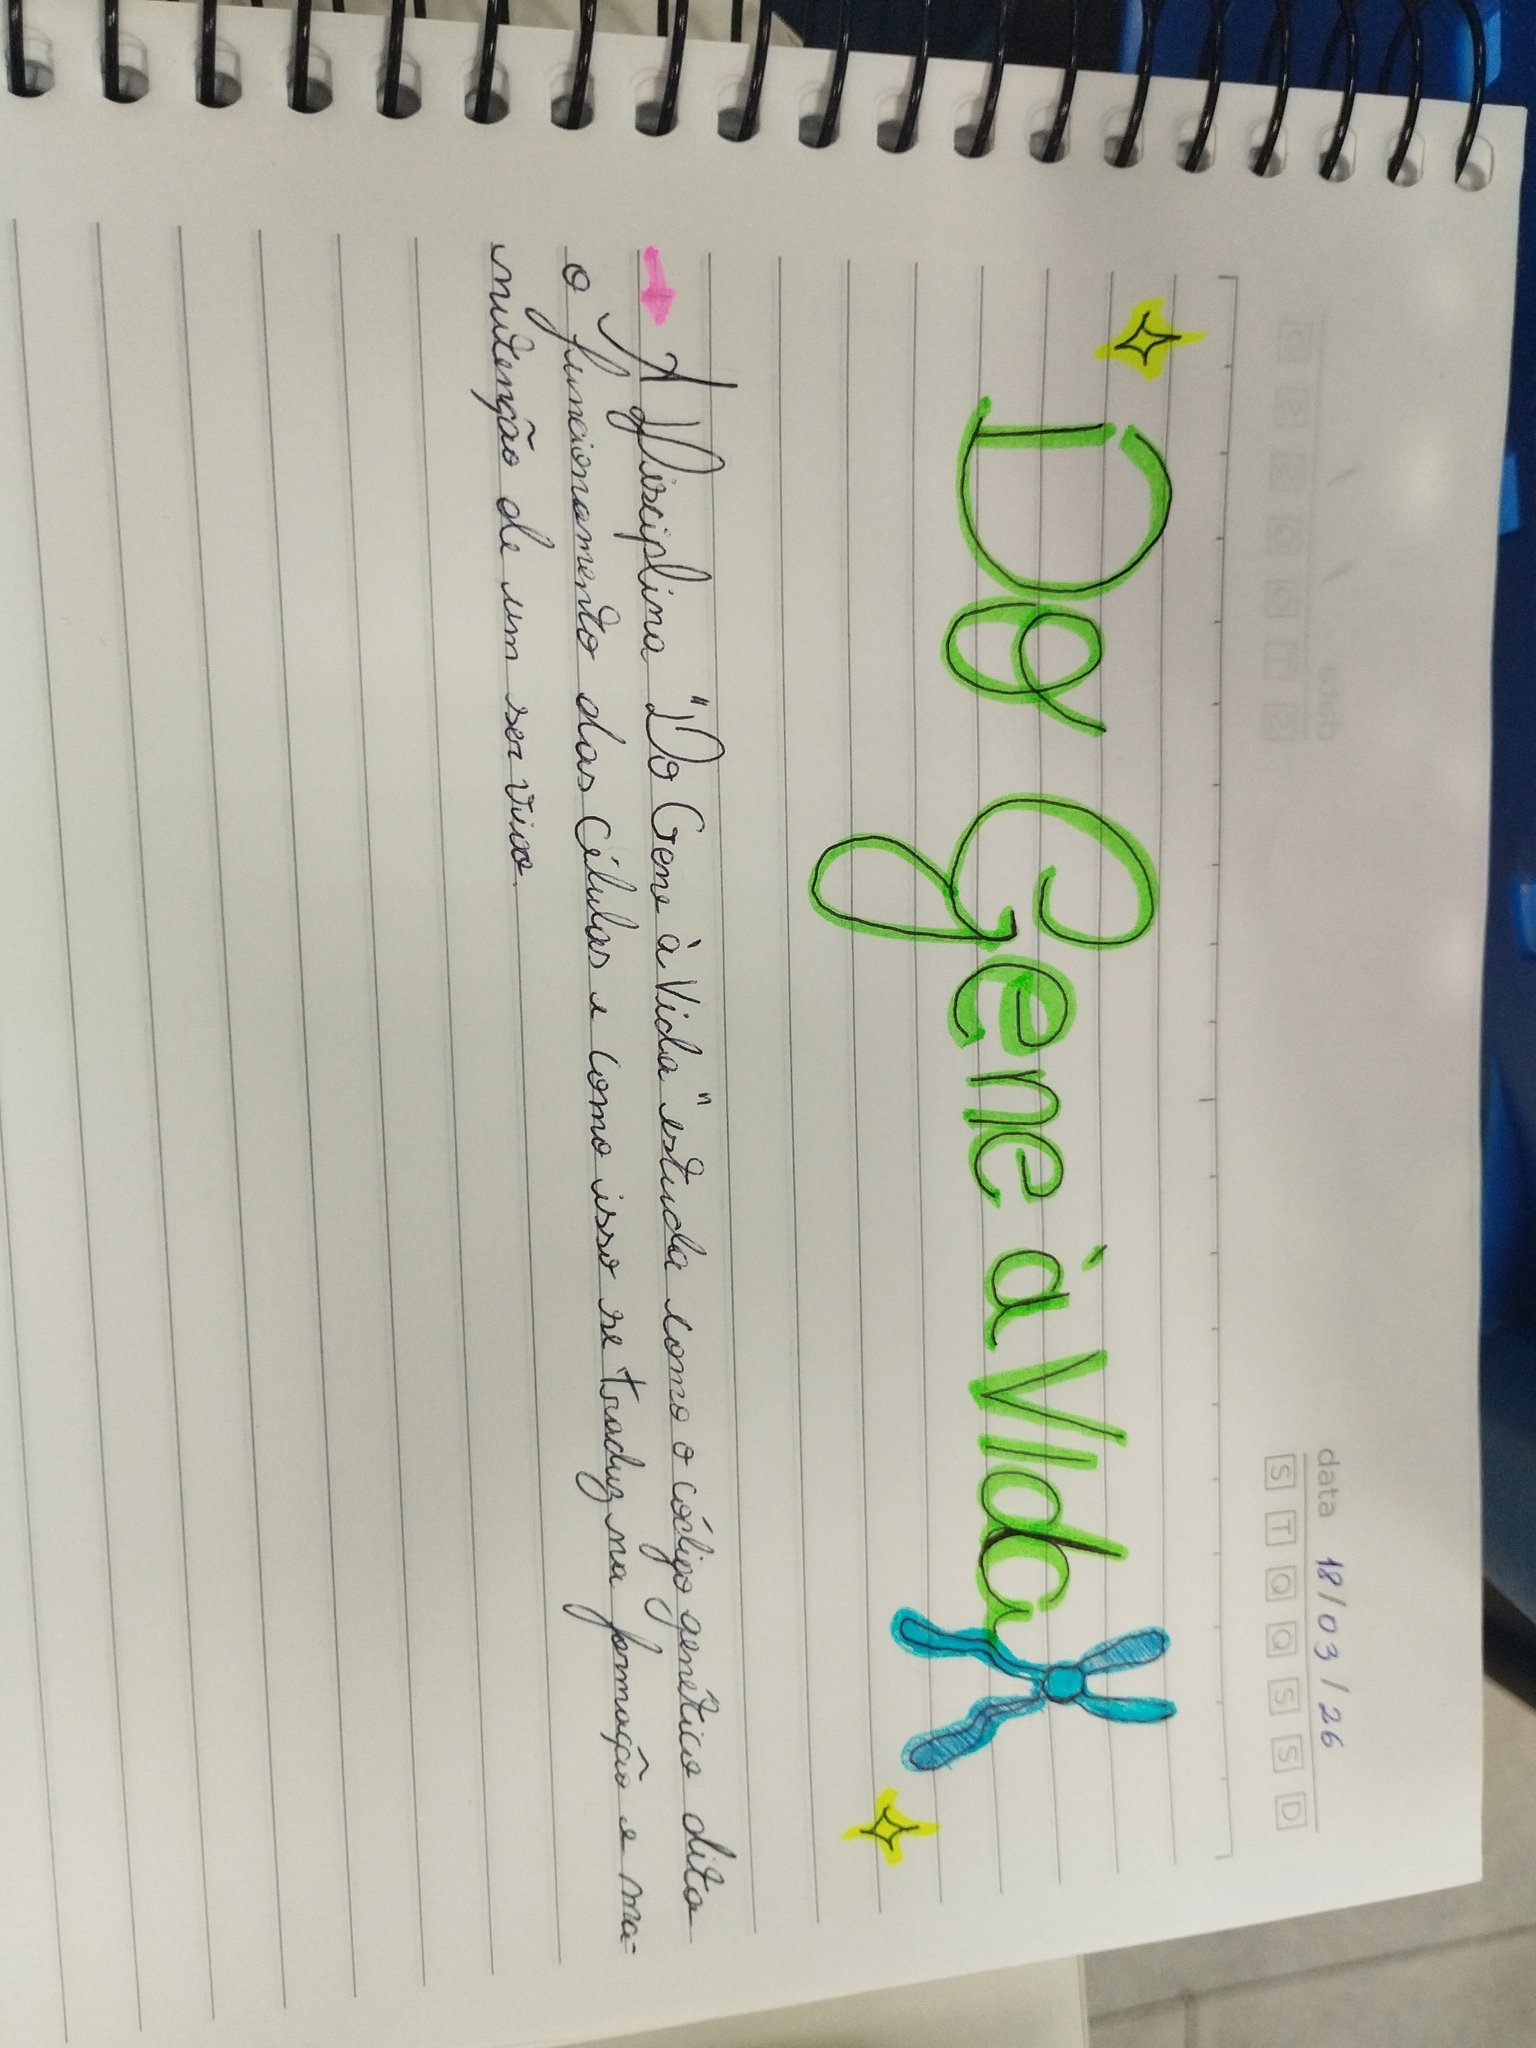 data 18/03/26
S T Q Q S S D
Do Gene à Vida
A Disciplina "Do Gene à Vida" estuda como o código genético dita
o funcionamento das células e como isso se traduz na formação e ma-
nutenção de um ser vivo.